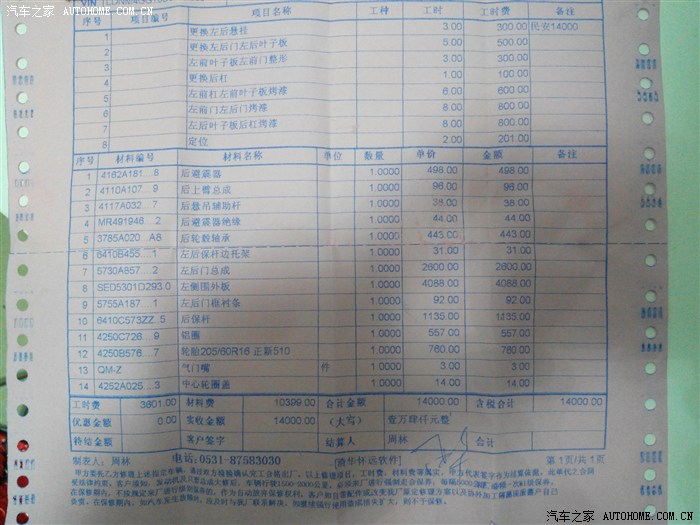 汽车之家 AUTOHOME.COM.CN
VIN
序号 项目编号 项目名称 工种 工时 工时费 备注
1 更换左后悬挂 3.00 300.00 民安14000
2 更换左后门左后叶子板 5.00 500.00
3 左前叶子板左前门整形 3.00 300.00
4 更换后杠 1.00 100.00
5 左前杠左前叶子板烤漆 6.00 600.00
6 左前门左后门烤漆 8.00 800.00
7 左后叶子板后杠烤漆 8.00 800.00
8 定位 2.00 201.00
序号 材料编号 材料名称 单位 数量 单价 金额 备注
1 4162A181...8 后避震器 1.0000 498.00 498.00
2 4110A107...9 后上臂总成 1.0000 96.00 96.00
3 4117A032...7 后悬吊辅助杆 1.0000 38.00 38.00
4 MR491946...2 后避震器绝缘 1.0000 44.00 44.00
5 3785A020...A8 后轮毂轴承 1.0000 443.00 443.00
6 6410B455...1 左后保杆边托架 1.0000 31.00 31.00
7 5730A857...2 左后门总成 1.0000 2600.00 2600.00
8 SED5301D293.0 左侧围外板 1.0000 4088.00 4088.00
9 5755A187...1 左后门框衬条 1.0000 92.00 92.00
10 6410C573ZZ 5 后保杆 1.0000 1135.00 1135.00
11 4250C726...9 铝圈 1.0000 557.00 557.00
12 4250B576...7 轮胎205/60R16 正新510 1.0000 760.00 760.00
13 QM-Z 气门嘴 件 1.0000 3.00 3.00
14 4252A025...3 中心轮圈盖 1.0000 14.00 14.00
工时费 3601.00 材料费 10399.00 合计金额 14000.00 含税合计 14000.00
优惠金额 0.00 实收金额 14000.00 (大写) 壹万肆仟元整
待结金额 0.00 客户签字 结算人 周林 会计
制表人: 周林 电话:0531-87583030 第1页/共1页
汽车之家 AUTOHOME.COM.CN